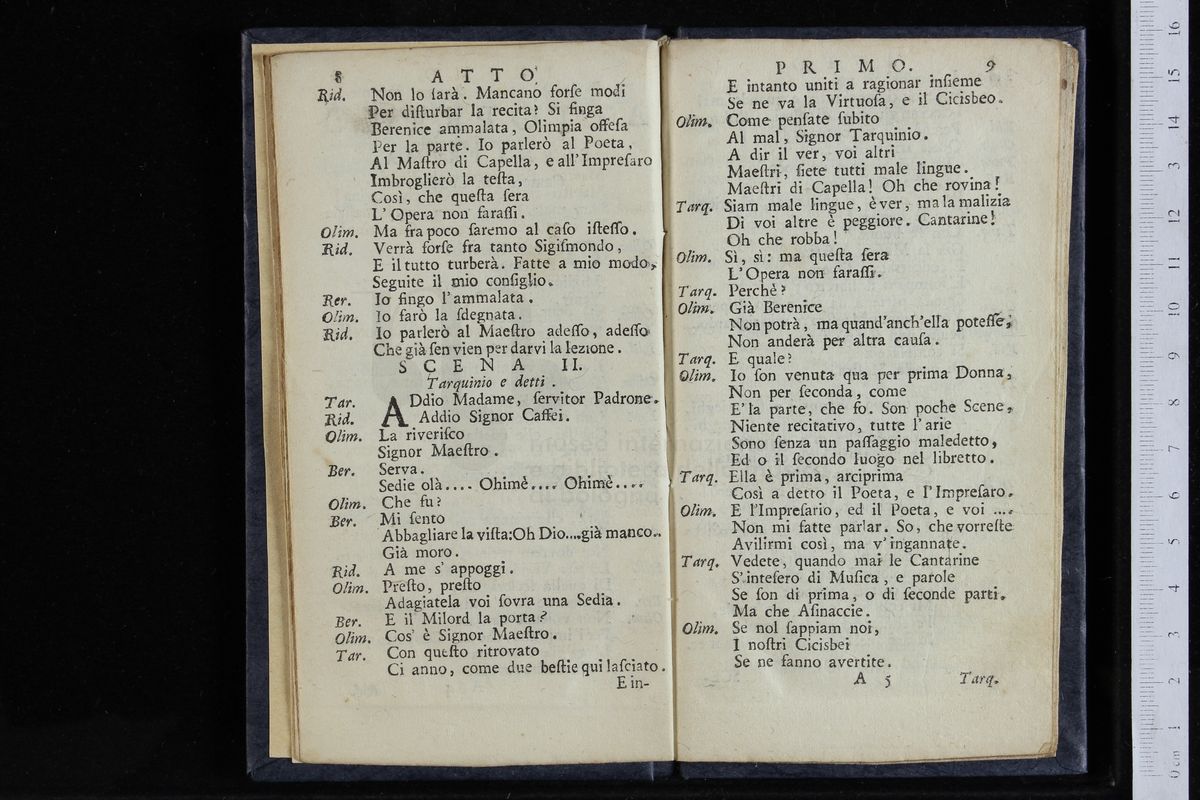 8 ATTO
Rid. Non lo ſarà. Mancano forſe modi
Per diſturbar la recita? Si finga
Berenice ammalata, Olimpia offeſa
Per la parte. Io parlerò al Poeta,
Al Maſtro di Capella, e all'Impreſaro
Imbroglierò la teſta,
Così, che queſta ſera
L'Opera non faraſſi.
Olim. Ma fra poco ſaremo al caſo iſteſſo.
Rid. Verrà forſe fra tanto Sigiſmondo,
E il tutto turberà. Fatte a mio modo,
Seguite il mio conſiglio.
Rer. Io fingo l'ammalata.
Olim. Io farò la ſdegnata.
Rid. Io parlerò al Maeſtro adeſſo, adeſſo
Che già ſen vien per darvi la lezione.
SCENA II.
Tarquinio e detti.
Tar. ADdio Madame, ſervitor Padrone.
Rid. Addio Signor Caffei.
Olim. La riveriſco
Signor Maeſtro.
Ber. Serva.
Sedie olà.... Ohimè.... Ohimè....
Olim. Che fu?
Ber. Mi ſento
Abbagliare la viſta: Oh Dio....già manco..
Già moro.
Rid. A me s'appoggi.
Olim. Preſto, preſto
Adagiatela voi ſovra una Sedia.
Ber. E il Milord la porta?
Olim. Cos'è Signor Maeſtro.
Tar. Con queſto ritrovato
Ci anno, come due beſtie qui laſciato.
E in-
PRIMO. 9
E intanto uniti a ragionar inſieme
Se ne va la Virtuoſa, e il Cicisbeo.
Olim. Come penſate ſubito
Al mal, Signor Tarquinio.
A dir il ver, voi altri
Maeſtri, ſiete tutti male lingue.
Maeſtri di Capella! Oh che rovina!
Tarq. Siam male lingue, è ver, ma la malizia
Di voi altre è peggiore. Cantarine!
Oh che robba!
Olim. Sì, sì: ma queſta ſera
L'Opera non faraſſi.
Tarq. Perchè?
Olim. Già Berenice
Non potrà, ma quand'anch'ella poteſſe,
Non anderà per altra cauſa.
Tarq. E quale?
Olim. Io ſon venuta qua per prima Donna,
Non per ſeconda, come
E' la parte, che fo. Son poche Scene,
Niente recitativo, tutte l'arie
Sono ſenza un paſſaggio maledetto,
Ed o il ſecondo luogo nel libretto.
Tarq. Ella è prima, arciprima
Così a detto il Poeta, e l'Impreſaro.
Olim. E l'Impreſario, ed il Poeta, e voi ....
Non mi fatte parlar. So, che vorreſte
Avilirmi così, ma v'ingannate.
Tarq. Vedete, quando mai le Cantarine
S'inteſero di Muſica, e parole
Se ſon di prima, o di ſeconde parti.
Ma che Aſinaccie.
Olim. Se nol ſappiam noi,
I noſtri Cicisbei
Se ne fanno avertite.
A 5 Tarq.
0 cm 1 2 3 4 5 6 7 8 9 10 11 12 13 14 15 16